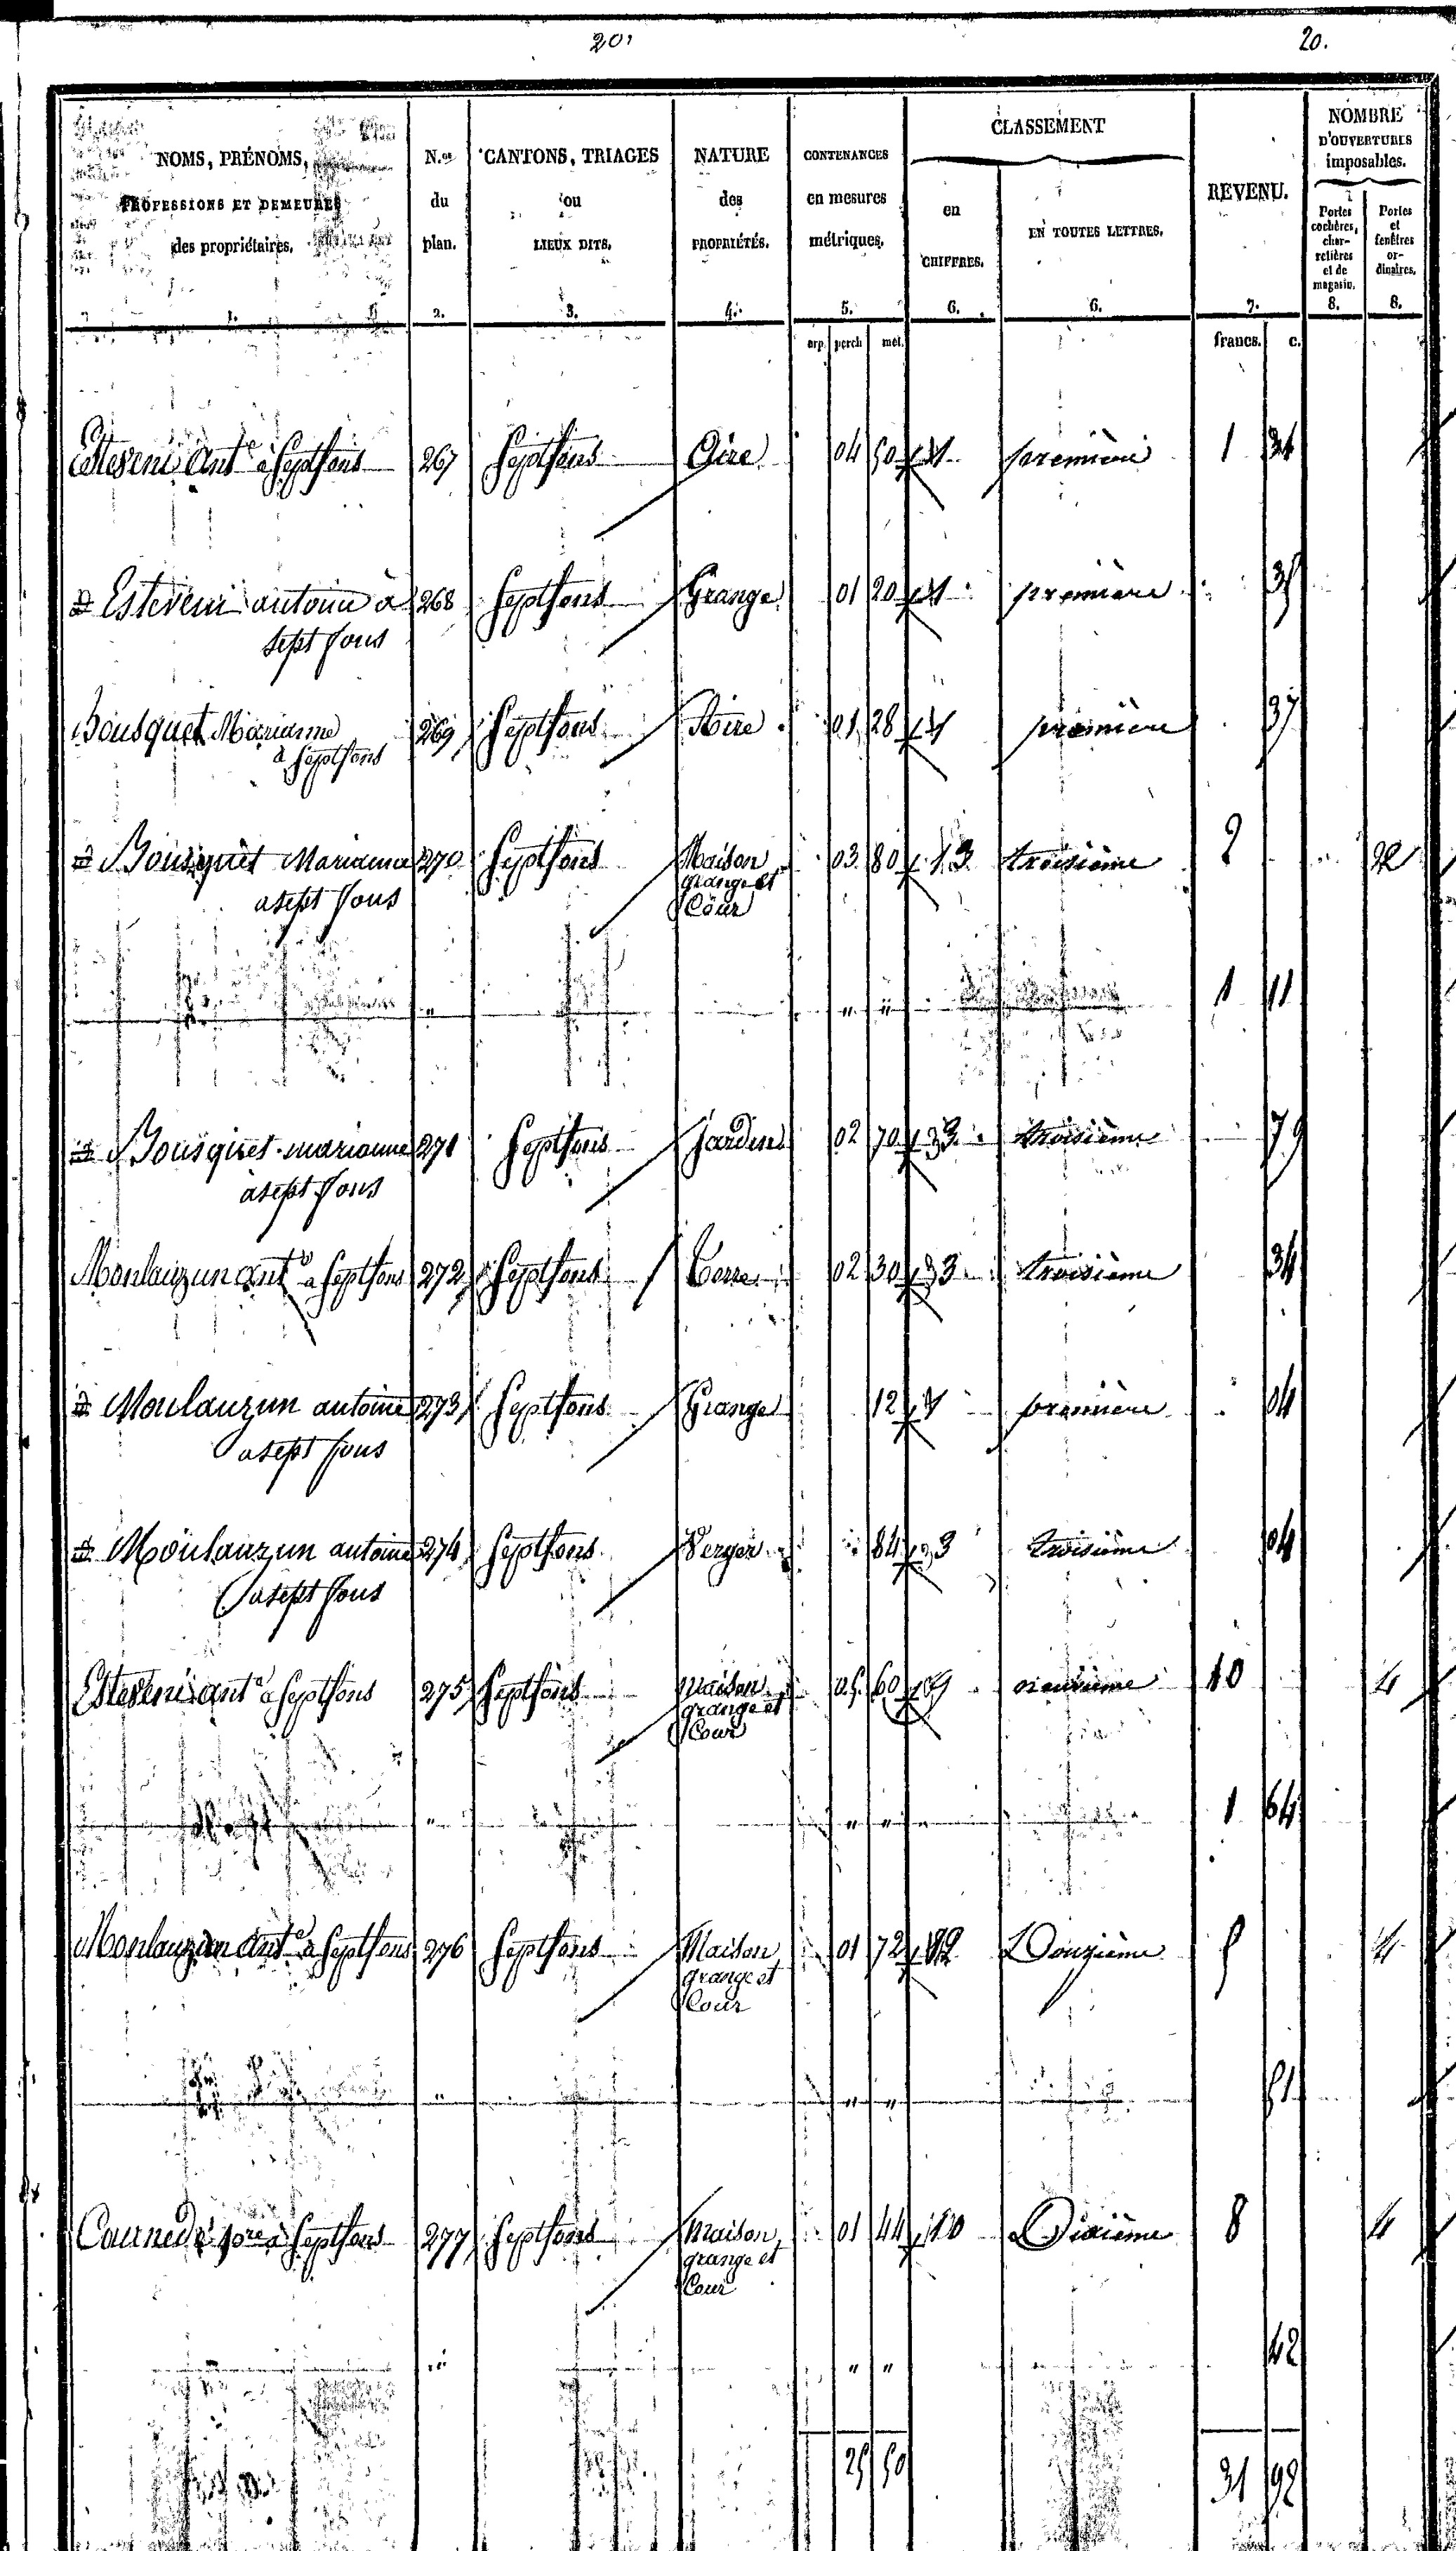 20.
20.
NOMS, PRÉNOMS,
PROFESSIONS ET DEMEURES
des propriétaires.
1.
N.os
du
plan.
2.
CANTONS, TRIAGES
ou
LIEUX DITS.
3.
NATURE
des
PROPRIÉTÉS.
4.
CONTENANCES
en mesures
métriques.
5.
arp. perch. mèt.
CLASSEMENT
en
CHIFFRES.
6.
EN TOUTES LETTRES.
6.
REVENU.
7.
francs. c.
NOMBRE
D'OUVERTURES
imposables.
Portes
cochères,
char-
retières
et de
magasin.
8.
Portes
et
fenêtres
or-
dinaires.
8.
Esteveni Ant.e à Septfons 267 Septfons Aire 04 50 1 première 1 31
Esteveni antoine à 268 Septfons Grange 01 20 1 première 35
sept fons
Bousquet Marianne 269 Septfons Aire 01 28 1 première 37
à Septfons
Bousquet Marianne 270 Septfons Maison 03 80 13 troisième 2
asept fons
grange et
Cour
" " " 1 11
Bousquet marianne 271 Septfons Jardin 02 70 3 troisième 79
asept fons
Monlauzun ant.e a Septfons 272 Septfons Terre 02 30 3 troisième 34
Moulauzun antoine 273 Septfons Grange 12 1 première 04
asept fons
Moulauzun antoine 274 Septfons Verger 84 3 troisième 04
asept fons
Esteveni ant.e a Septfons 275 Septfons Maison 05 60 9 neuvième 10 4
grange et
Cour
" " " 1 64
Monlauzun Ant.e a Septfons 276 Septfons Maison 01 72 12 Douzième 5 4
grange et
Cour
" " " 51
Septfons 277 Septfons Maison 01 44 10 Dixième 8 4
grange et
Cour
" " " 42
25 50 31 92